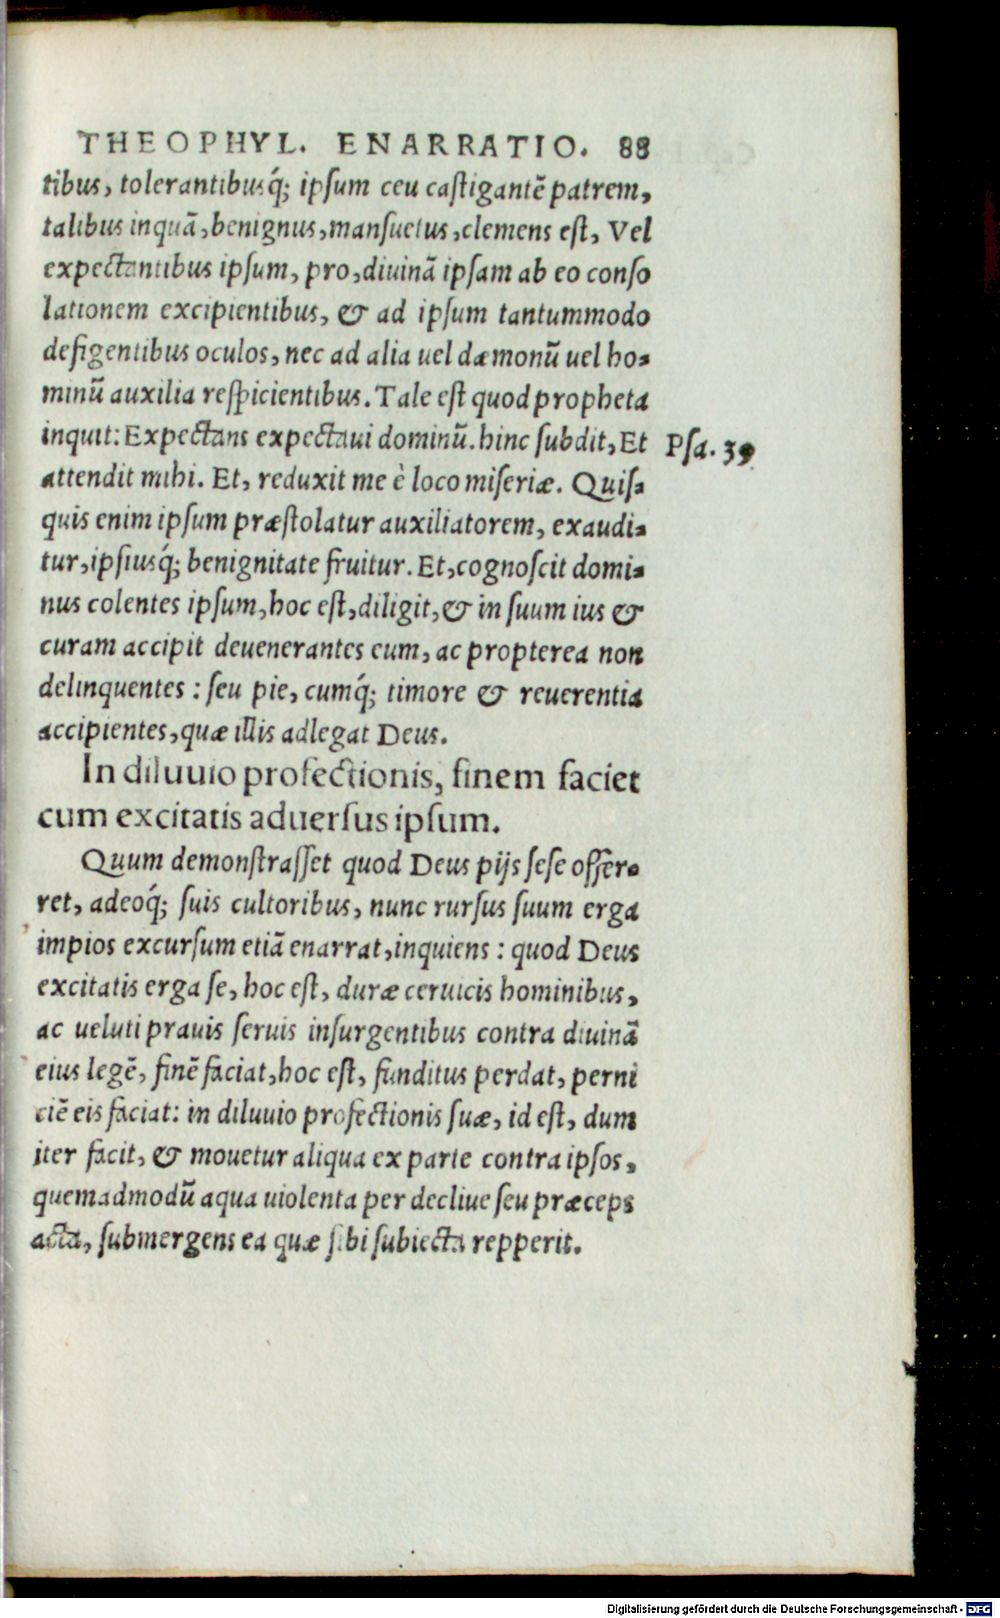 THEOPHYL. ENARRATIO. 88
tibus, tolerantibusq́; ipſum ceu caſtigantẽ patrem,
talibus inquã, benignus, manſuetus, clemens eſt, Vel
expectantibus ipſum, pro, diuinã ipſam ab eo conſo
lationem excipientibus, & ad ipſum tantummodo
defigentibus oculos, nec ad alia uel dæmonũ uel ho-
minũ auxilia reſpicientibus. Tale eſt quod propheta
inquit: Expectans expectaui dominũ. hinc ſubdit, Et
Pſa. 39
attendit mihi. Et, reduxit me è loco miſeriæ. Quiſ-
quis enim ipſum præſtolatur auxiliatorem, exaudi-
tur, ipſiusq́; benignitate fruitur. Et, cognoſcit domi-
nus colentes ipſum, hoc eſt, diligit, & in ſuum ius &
curam accipit deuenerantes eum, ac propterea non
delinquentes: ſeu pie, cumq́; timore & reuerentia
accipientes, quæ illis adlegat Deus.
In diluuio profectionis, finem faciet
cum excitatis aduerſus ipſum.
Quum demonſtraſſet quod Deus pijs ſeſe offer-
ret, adeoq́; ſuis cultoribus, nunc rurſus ſuum erga
impios excurſum etiã enarrat, inquiens: quod Deus
excitatis erga ſe, hoc eſt, duræ ceruicis hominibus,
ac ueluti prauis ſeruis inſurgentibus contra diuinã
eius legẽ, finẽ faciat, hoc eſt, funditus perdat, perni
ciẽ eis faciat: in diluuio profectionis ſuæ, id eſt, dum
iter facit, & mouetur aliqua ex parte contra ipſos,
quemadmodũ aqua uiolenta per decliue ſeu præceps
acta, ſubmergens ea quæ ſibi ſubiecta repperit.
Digitalisierung gefördert durch die Deutsche Forschungsgemeinschaft - DFG